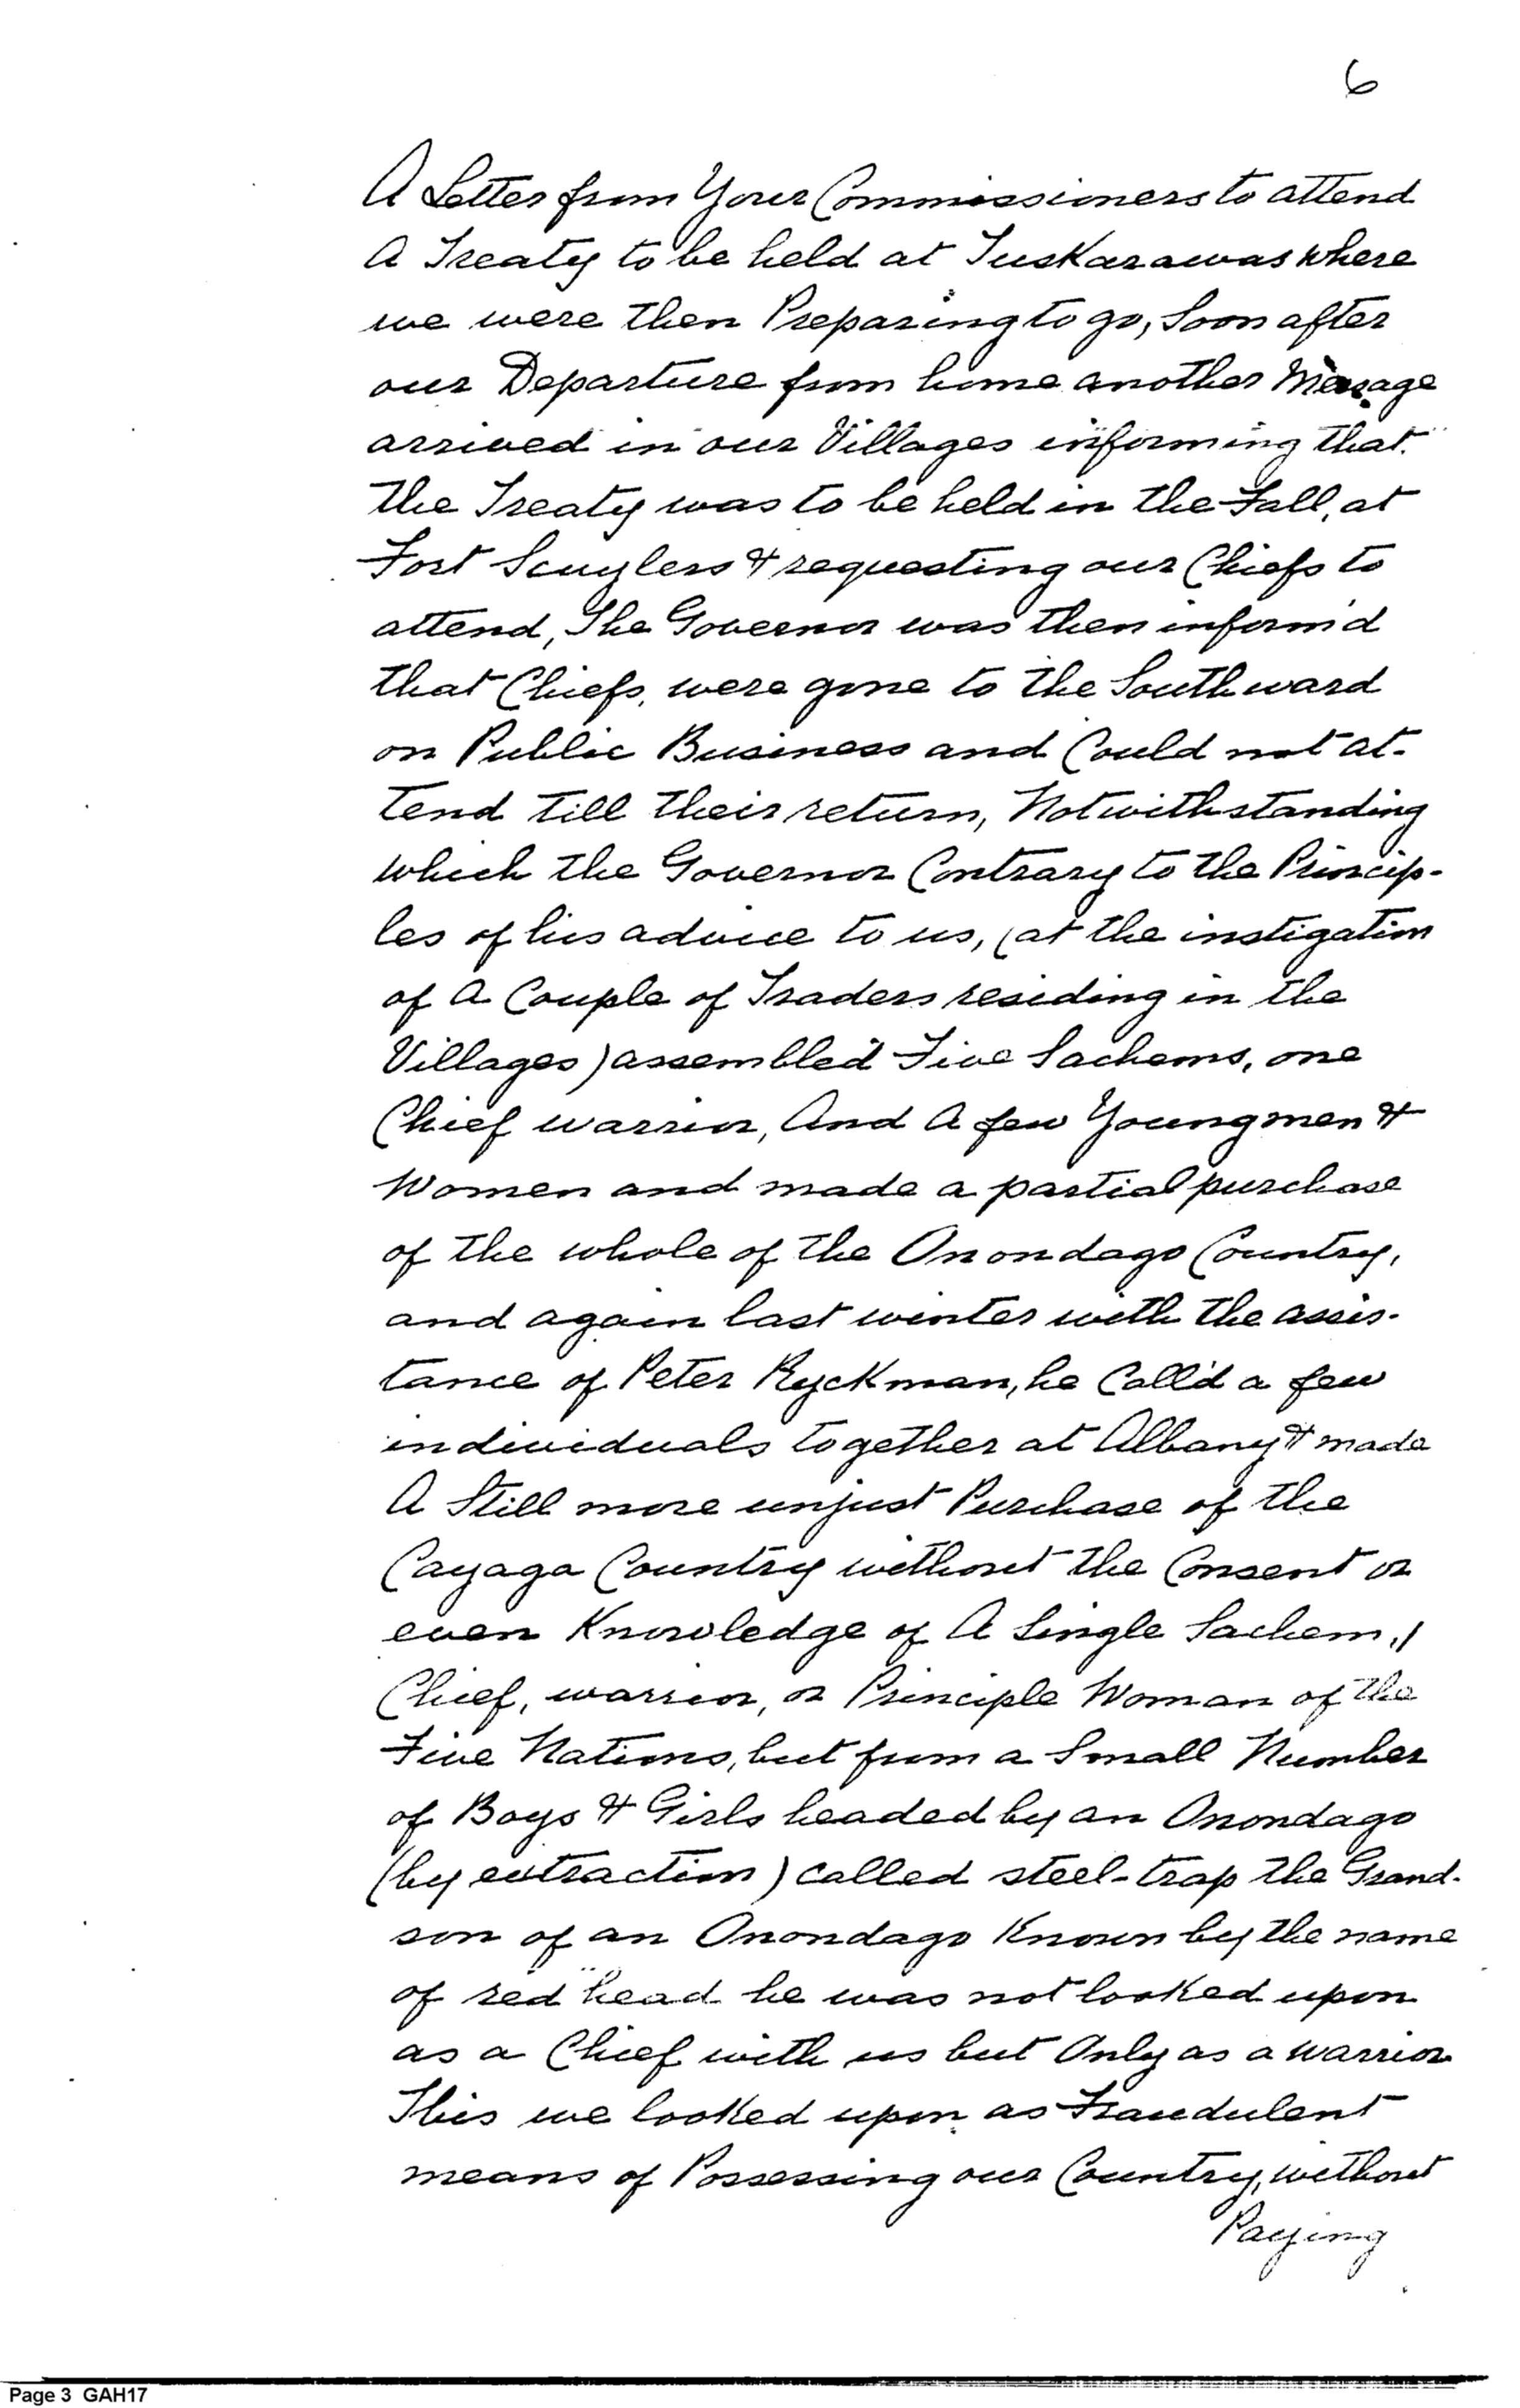 6
A Letter from Your Commissioners to attend
A Treaty to be held at Tuskarawas where
we were then Preparing to go, Soon after
our Departure from home another Message
arrived in our Villages informing that
the Treaty was to be held in the Fall, at
Fort Scuylers & requesting our Chiefs to
attend, The Governor was then inform'd
that Chiefs, were gone to the Southward
on Public Business and Could not at-
tend till their return, Notwithstanding
which the Governor Contrary to the Princip-
les of his advice to us, (at the instigation
of A Couple of Traders residing in the
Villages) assembled Five Sachems, one
Chief warrior, And A few Youngmen &
Women and made a partial purchase
of the whole of the Onondago Country,
and again last winter with the assis-
tance of Peter Ryckman, he Call'd a few
individuals together at Albany & made
A Still more unjust Purchase of the
Cayaga Country without the Consent or
even Knowledge of A Single Sachem,
Chief, warrior, or Principle Woman of the
Five Nations, but from a Small Number
of Boys & Girls headed by an Onondago
(by extraction) called steel-trap the Grand-
son of an Onondago Known by the name
of red head he was not looked upon
as a Chief with us but Only as a warrior
This we looked upon as Fraudulent
means of Possessing our Country, without
Paying
Page 3 GAH17